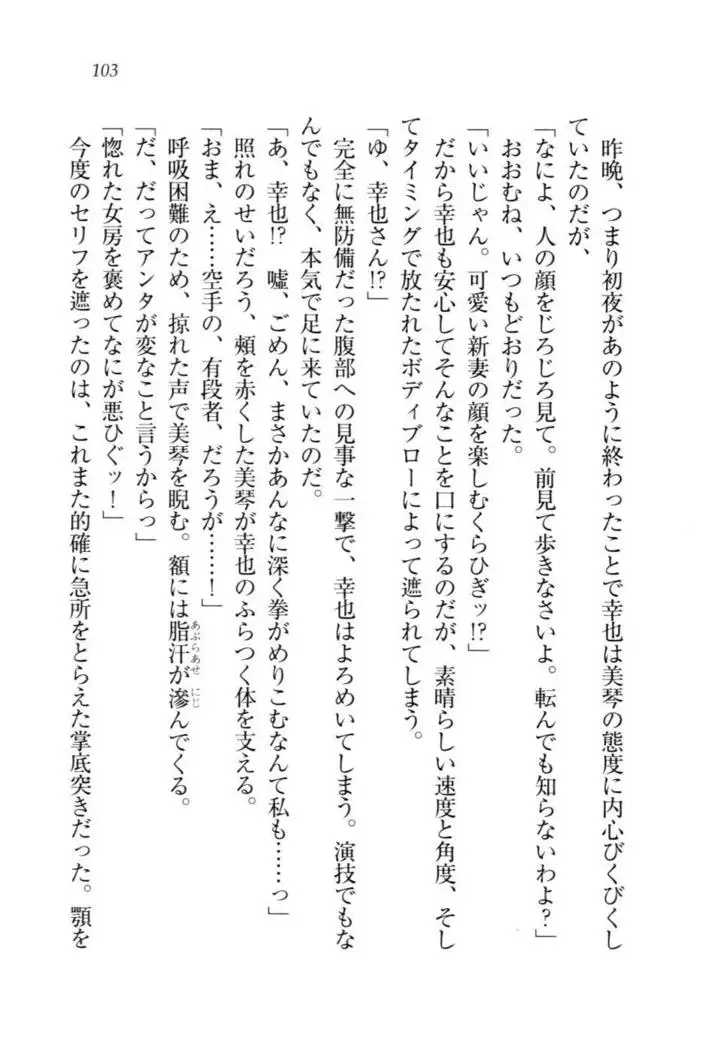 103
昨晩、つまり初夜があのように終わったことで幸也は美琴の態度に内心びくびくし
ていたのだが、
「なによ、人の顔をじろじろ見て。前見て歩きなさいよ。転んでも知らないわよ?」
おおむね、いつもどおりだった。
「いいじゃん。可愛い新妻の顔を楽しむくらひぎッ!?」
だから幸也も安心してそんなことを口にするのだが、素晴らしい速度と角度、そし
てタイミングで放たれたボディブローによって遮られてしまう。
「ゆ、幸也さん!?」
完全に無防備だった腹部への見事な一撃で、幸也はよろめいてしまう。演技でもな
んでもなく、本気で足に来ていたのだ。
「あ、幸也!? 嘘、ごめん、まさかあんなに深く拳がめりこむなんて私も……っ」
照れのせいだろう、頰を赤くした美琴が幸也のふらつく体を支える。
「おま、え……空手の、有段者、だろうが……!」
呼吸困難のため、掠れた声で美琴を睨む。額には脂汗が滲んでくる。
あぶらあせ にじ
「だ、だってアンタが変なこと言うからっ」
「惚れた女房を褒めてなにが悪ひぐッ!」
今度のセリフを遮ったのは、これまた的確に急所をとらえた掌底突きだった。顎を